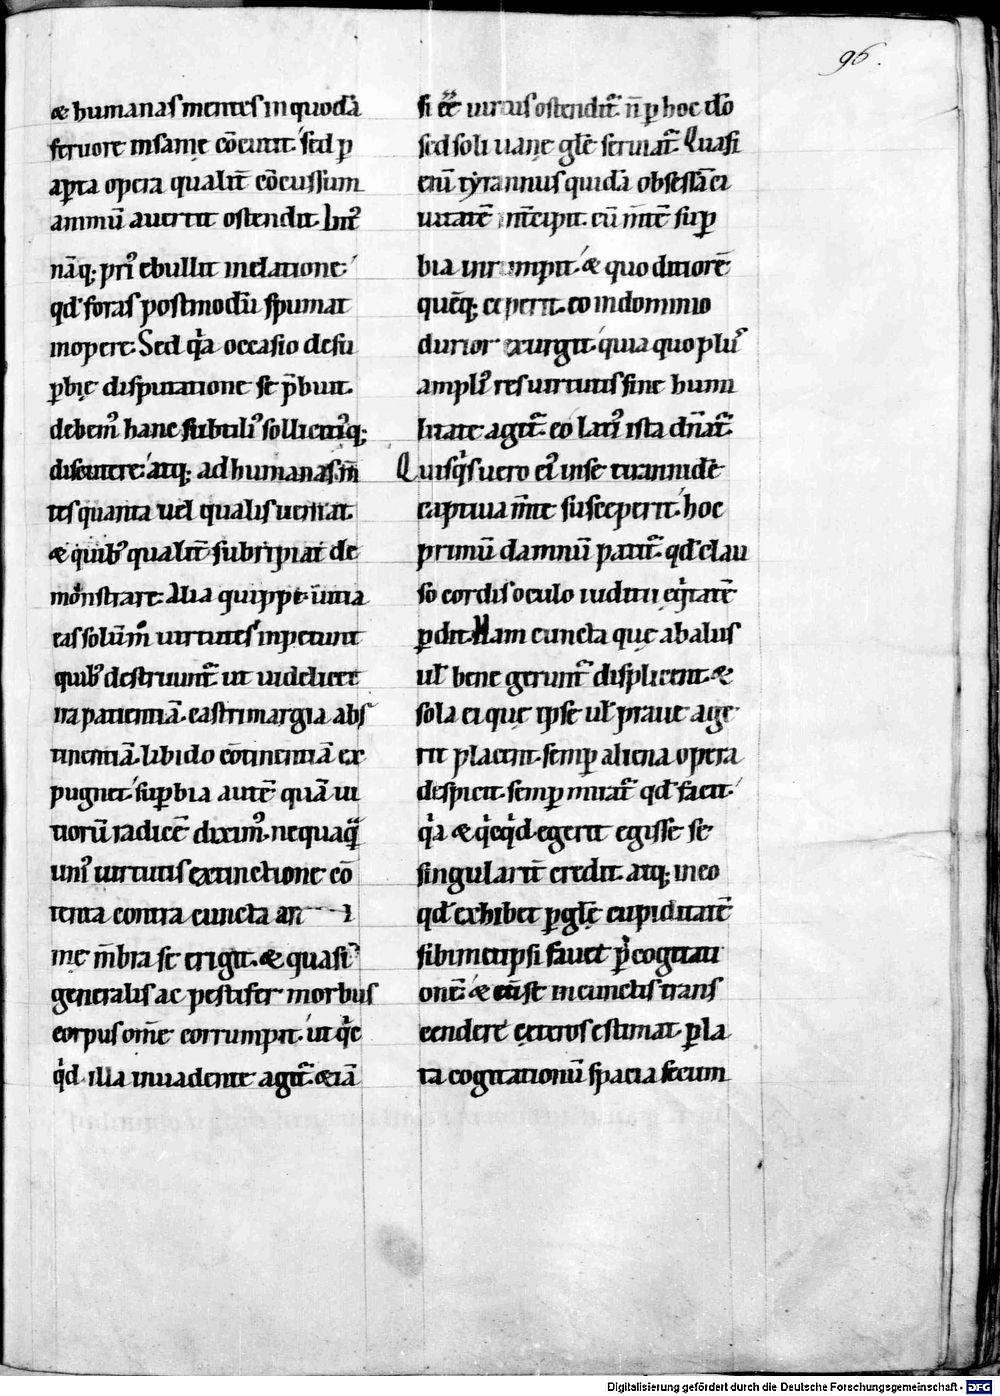 96.
& humanas mentes in quodā
feruore insanię cōcutit. sed p̱
aꝑta opera qualit̄ cōcussum
animū auertit ostendit. Int᷒
nāq; pri᷒ ebullit in elatione.
qd' foras postmodū spumat
in opere. Sed q̇a occasio de su
ꝑbię disputatione se p̄buit.
debem᷒ hanc subtili᷒ sollicitiq;
discutere. atq; ad humanas m̄
tes quanta uel qualis ueniat.
& quib᷒ qualit̄ subripiat de
monstrare. Alia quippe uitia
eas solūm̊ uirtutes inpetunt
quib᷒ destruunt᷒ ut uidelicet
ira patientiā. castrimargia abs
tinentiā. libido cōtinentiā ex
pugnet. suꝑbia autē quā ui
tiorū radicē dixim᷒. nequaq̄
uni᷒ uirtutis extinctione cō
tenta contra cuncta an
mę m̄bra se erigit. & quasi
generalis ac pestifer morbus
corpus om̄e corrumpit. ut q̇c
q̇d illa inuadente agit᷒. &iā
si ēē uirtus ostendit᷒. n̄ ꝑ hoc dō
sed soli uanę glē seruiat᷒. Quasi
enī tyrannus quidā obsessā ci
uitatē intcipit. cū m̄tē suꝑ
bia inrumpit. & quo ditiorē
quēq; ceperit. eo in dominio
durior exurgit. quia quo plu᷒
ampli᷒ res uirtutis sine humi
litate agit᷒. eo lati᷒ ista dn̄at᷒.
Quisq̇s uero ei᷒ in se tirannidē
captiua m̄te susceperit. hoc
primū damnū patit᷒. qd' clau
so cordis oculo iuditii eq̇tatē
ꝑdit. Nam cuncta quę ab aliis
ut' bene gerunt᷒ displicent. &
sola ei quę ipse ut' praue age
rit placent. semꝑ aliena opera
despicit. semꝑ mirat᷒ qd' facit.
q̇a & q̇cq̇d egerit egisse se
singularit̄ credit. atq; in eo
qd' exhibet ꝑ glę cupiditatē
sibimetipsi fauet ꝑ cogitati
onē. & cū se in cunctis trans
cendere cęteros estimat. ꝑ la
ta cogitationū spacia secum
Digitalisierung gefördert durch die Deutsche Forschungsgemeinschaft - DFG